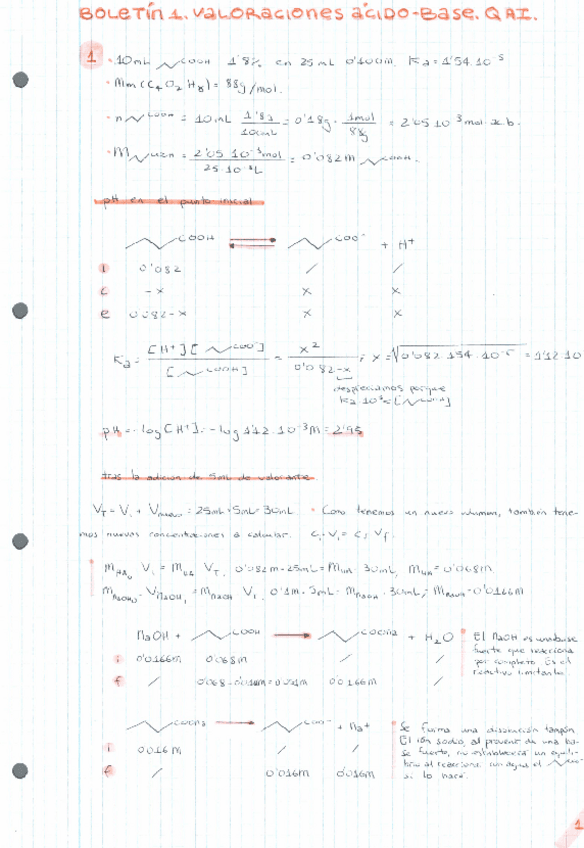 BOLETÍN 1. VALORACIONES ÁCIDO-BASE. QAI.
1 · 10mL COOH 1'8% en 25mL Ka = 1'54·10⁻⁵
· Mm(C4O2H8) = 88g/mol.
· n COOH = 10mL 1'8g/100mL = 0'18g · 1mol/88g = 2'05·10⁻³mol
· M = 2'05·10⁻³mol / 25·10⁻³L = 0'082M COOH.
pH en el punto inicial
COOH COO⁻ + H⁺
i 0'082 / /
c -x x x
e 0'082-x x x
Ka = [H⁺][COO⁻] / [COOH] = x² / 0'082-x ; x = √0'082·1'54·10⁻⁵ = 1'12·10
despreciamos porque
Ka 10⁻⁵ < [COOH]
pH = -log[H⁺] = -log 1'12·10⁻³M = 2'95
tras la adición de 5mL de valorante
VT = Vi + VNaOH = 25mL + 5mL = 30mL · Como tenemos un nuevo volumen, también tene-
mos nuevas concentraciones a calcular. Ci·Vi = Cf·Vf.
MHA0 · Vi = MHA · VT, 0'082M·25mL = MHA·30mL, MHA = 0'068M
MNaOH0 · VNaOH = MNaOH · VT, 0'1M·5mL = MNaOH·30mL; MNaOH = 0'0166M
NaOH + COOH COONa + H₂O
i 0'0166M 0'068M / /
f / 0'068-0'0166= 0'0166M /
El NaOH es una base
fuerte que reacciona
por completo. Es el
reactivo limitante.
COONa COO⁻ + Na⁺
i 0'016M / /
f / 0'016M 0'016M
Se forma una disolución tampón.
El ión sodio, al provenir de una ba-
se fuerte, no establecerá un equili-
brio al reaccionar con agua, el COO⁻
sí lo hará.
1